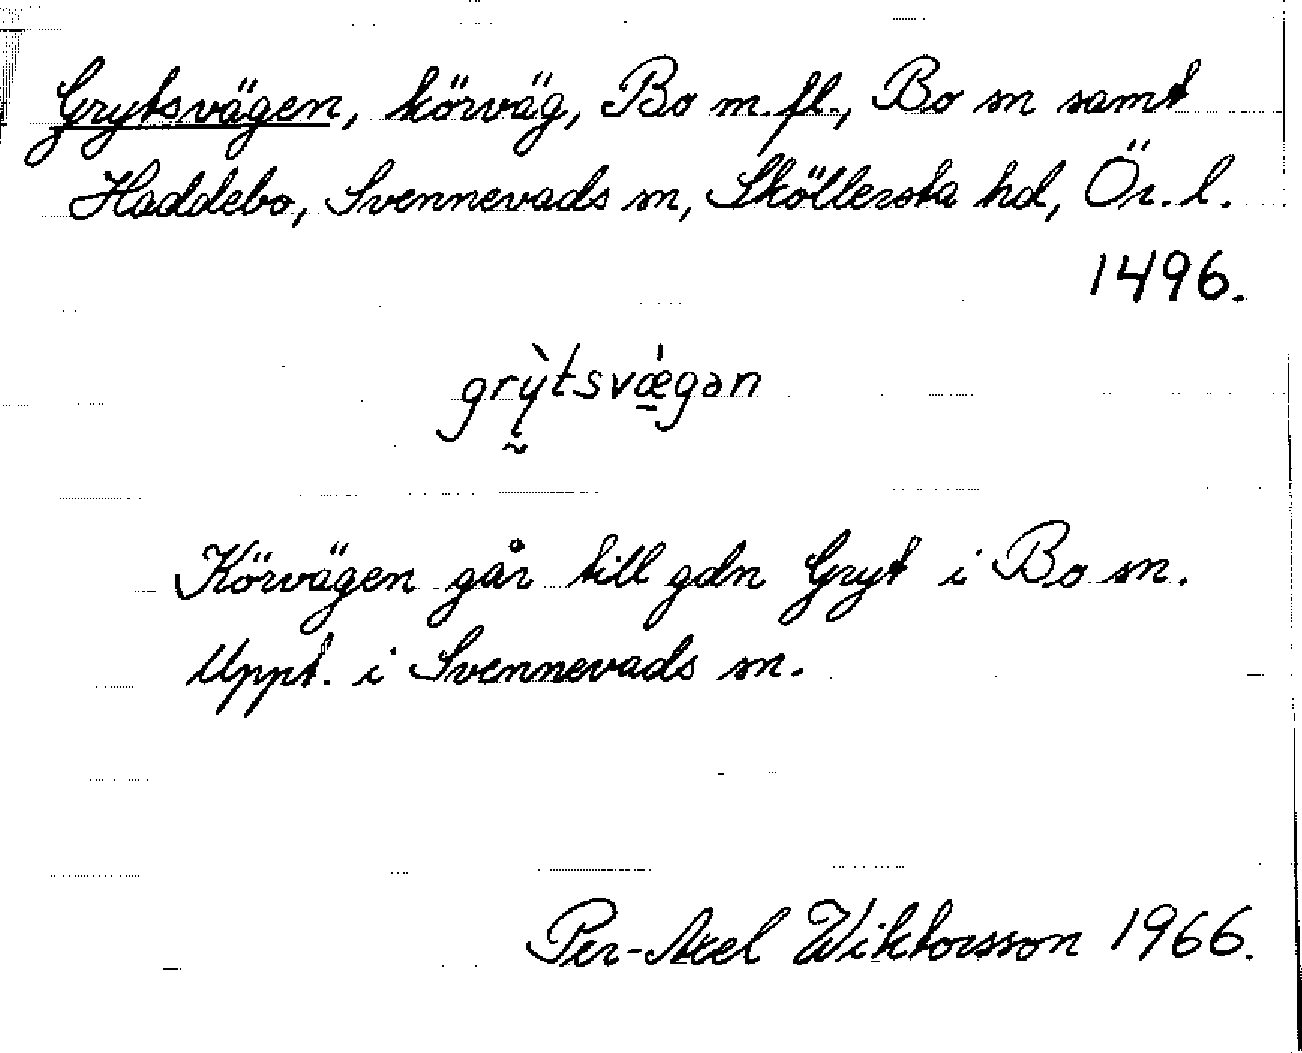 Grytsvägen, körväg, Bo m. fl., Bo sn samt
Haddebo, Svennevads sn, Sköllersta hd, Ör. l.
1496.
grỳtsvǽgən
Körvägen går till gdn Gryt i Bo sn.
Uppt. i Svennevads sn.
Per-Axel Wiktorsson 1966.